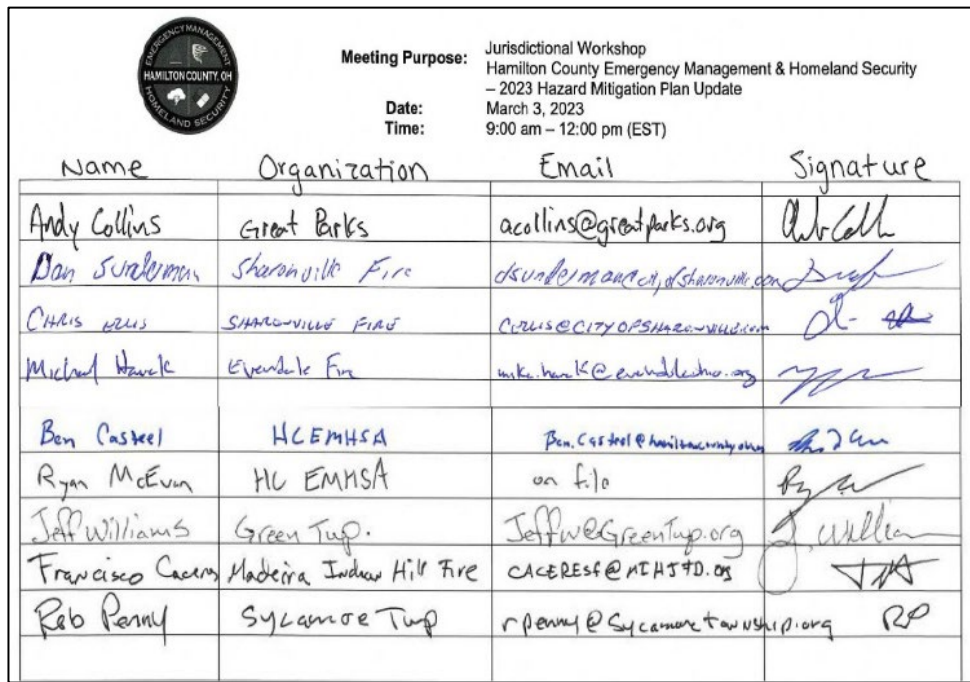 EMERGENCY MANAGEMENT
HAMILTON COUNTY, OH
HOMELAND SECURITY
Meeting Purpose: Jurisdictional Workshop
Hamilton County Emergency Management & Homeland Security
– 2023 Hazard Mitigation Plan Update
Date: March 3, 2023
Time: 9:00 am – 12:00 pm (EST)
Name Organization Email Signature
Andy Collins Great Parks acollins@greatparks.org
Dan Sunderman Sharonville Fire
CHRIS SHARONVILLE FIRE
Michael Hawk Evendale Fire
Ben Casteel HCEMHSA
Ryan McEwan HC EMHSA on file
Jeff Williams Green Twp. JeffW@GreenTwp.org J. William
Francisco Caceres Madeira Indian Hill Fire CACERESF@MIHJFD.org
Rob Penny Sycamore Twp rpenny@sycamoretownship.org RP